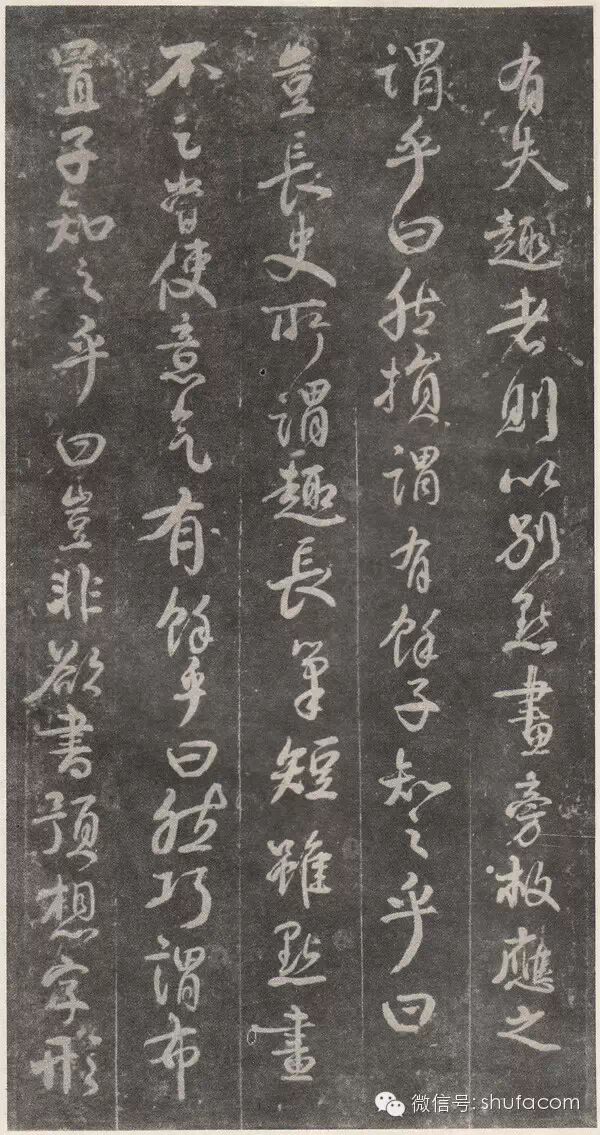 有失趣者則以別點畫旁救應之
謂乎曰然損謂有餘子知之乎曰
豈長史所謂趣長筆短雖點畫
不足常使意气有餘乎曰然巧謂布
置子知之乎曰豈非欲書預想字形
微信号: shufacom